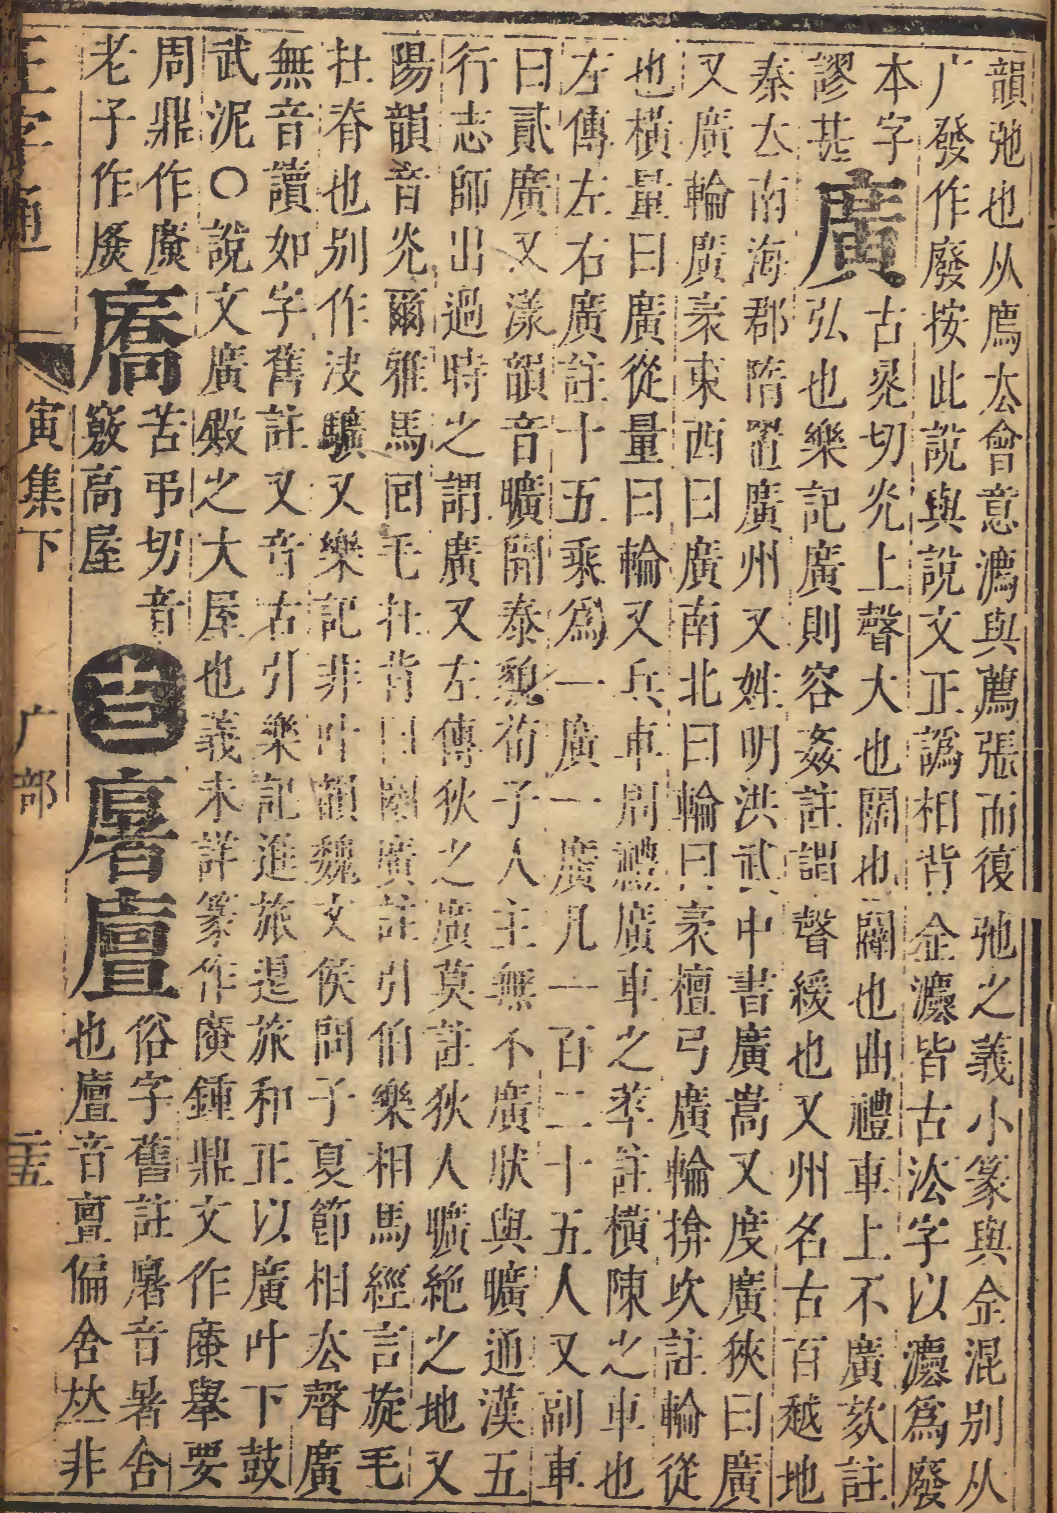 韻弛也从廌厺會意瀉與薦張而復弛之義小篆與佱混别从
广發作廢按此說與說文正譌相背佱灋皆古㳒字以灋爲廢
本字
謬甚
廣
古晃切光上聲大也闊也闡也曲禮車上不廣欬註
弘也樂記廣則容姦註謂聲緩也又州名古百越地
秦厺南海郡隋置廣州又姓明洪武中書廣嵩又度廣狹曰廣
又廣輪廣袤東西曰廣南北曰輪曰袤檀弓廣輪揜坎註輪從
也橫量曰廣從量曰輪又兵車周禮廣車之萃註橫陳之車也
左傳左右廣註十五乘爲一廣一廣凡一百二十五人又副車
曰貳廣又漾韻音曠開泰貌荀子人主無不廣肰與曠通漢五
行志師出過時之謂廣又左傳狄之廣莫註狄人曠絶之地又
陽韻音光爾雅馬囘毛在背曰闋廣註引伯樂相馬經言旋毛
在脊也别作㳏驥又樂記非叶韻魏文侯問子夏節相厺聲廣
無音讀如字舊註又音古引樂記進旅退旅和正以廣叶下鼓
武泥○說文廣殿之大屋也義未詳篆作廣鍾鼎文作㢓舉要
周鼎作廣
老子作㡴
㢗
苦弔切音
竅高屋
𠮷
㕑㢆
俗字舊註㕑音暑舍
也㢆音亶偏舍𠀤非
正字通
寅集下
广部
二十五